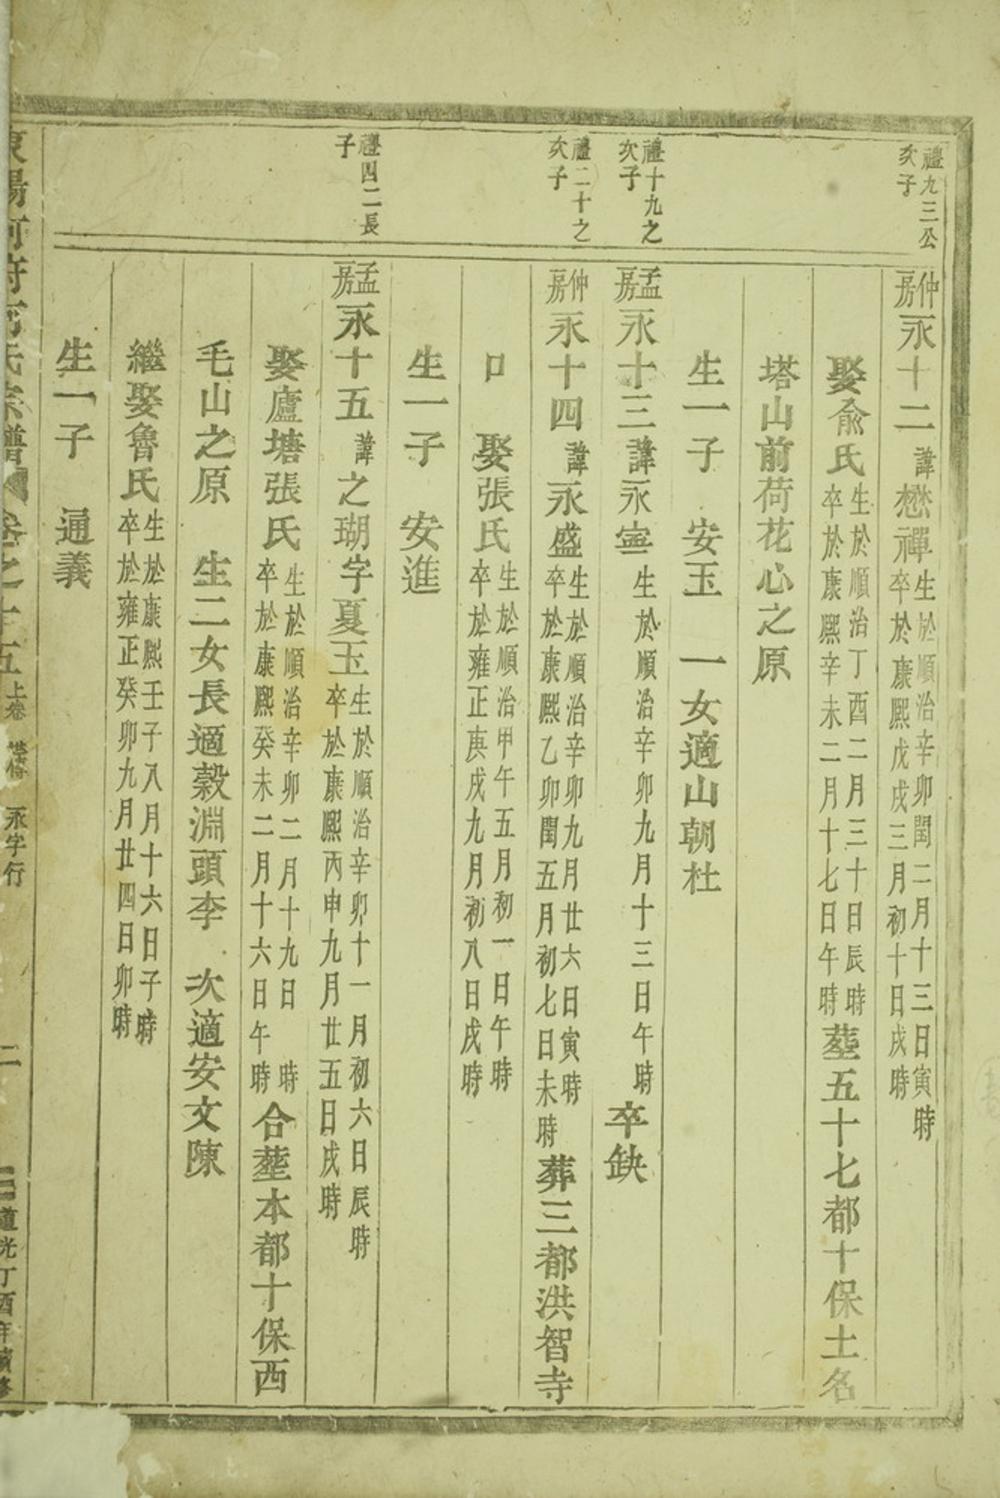 禮九三公
次子
仲房永十二諱懋禪生於順治辛卯閏二月十三日寅時
卒於康熙戊戌三月初十日戌時
娶俞氏生於順治丁酉二月三十日辰時
卒於康熙辛未二月十七日午時
塟五十七都十保土名
塔山前荷花心之原
生一子 安玉 一女適山朝杜
禮十九之
次子
孟房永十三諱永寍生於順治辛卯九月十三日午時 卒缺
禮二十之
次子
仲房永十四諱永盛生於順治辛卯九月廿六日寅時
卒於康熙乙卯閏五月初七日未時
葬三都洪智寺
口 娶張氏生於順治甲午五月初一日午時
卒於雍正庚戌九月初八日戌時
生一子 安進
禮四二長
子
孟房永十五諱之瑚字夏玉生於順治辛卯十一月初六日辰時
卒於康熙丙申九月廿五日戌時
娶廬塘張氏生於順治辛卯二月十九日 時
卒於康熙癸未二月十六日午時
合塟本都十保西
毛山之原 生二女長適穀淵頭李 次適安文陳
繼娶魯氏生於康熙壬子八月十六日子時
卒於雍正癸卯九月廿四日卯時
生一子 通義
東陽河府 氏宗譜 卷之十五上卷 永字行
二
道光丁酉年續修